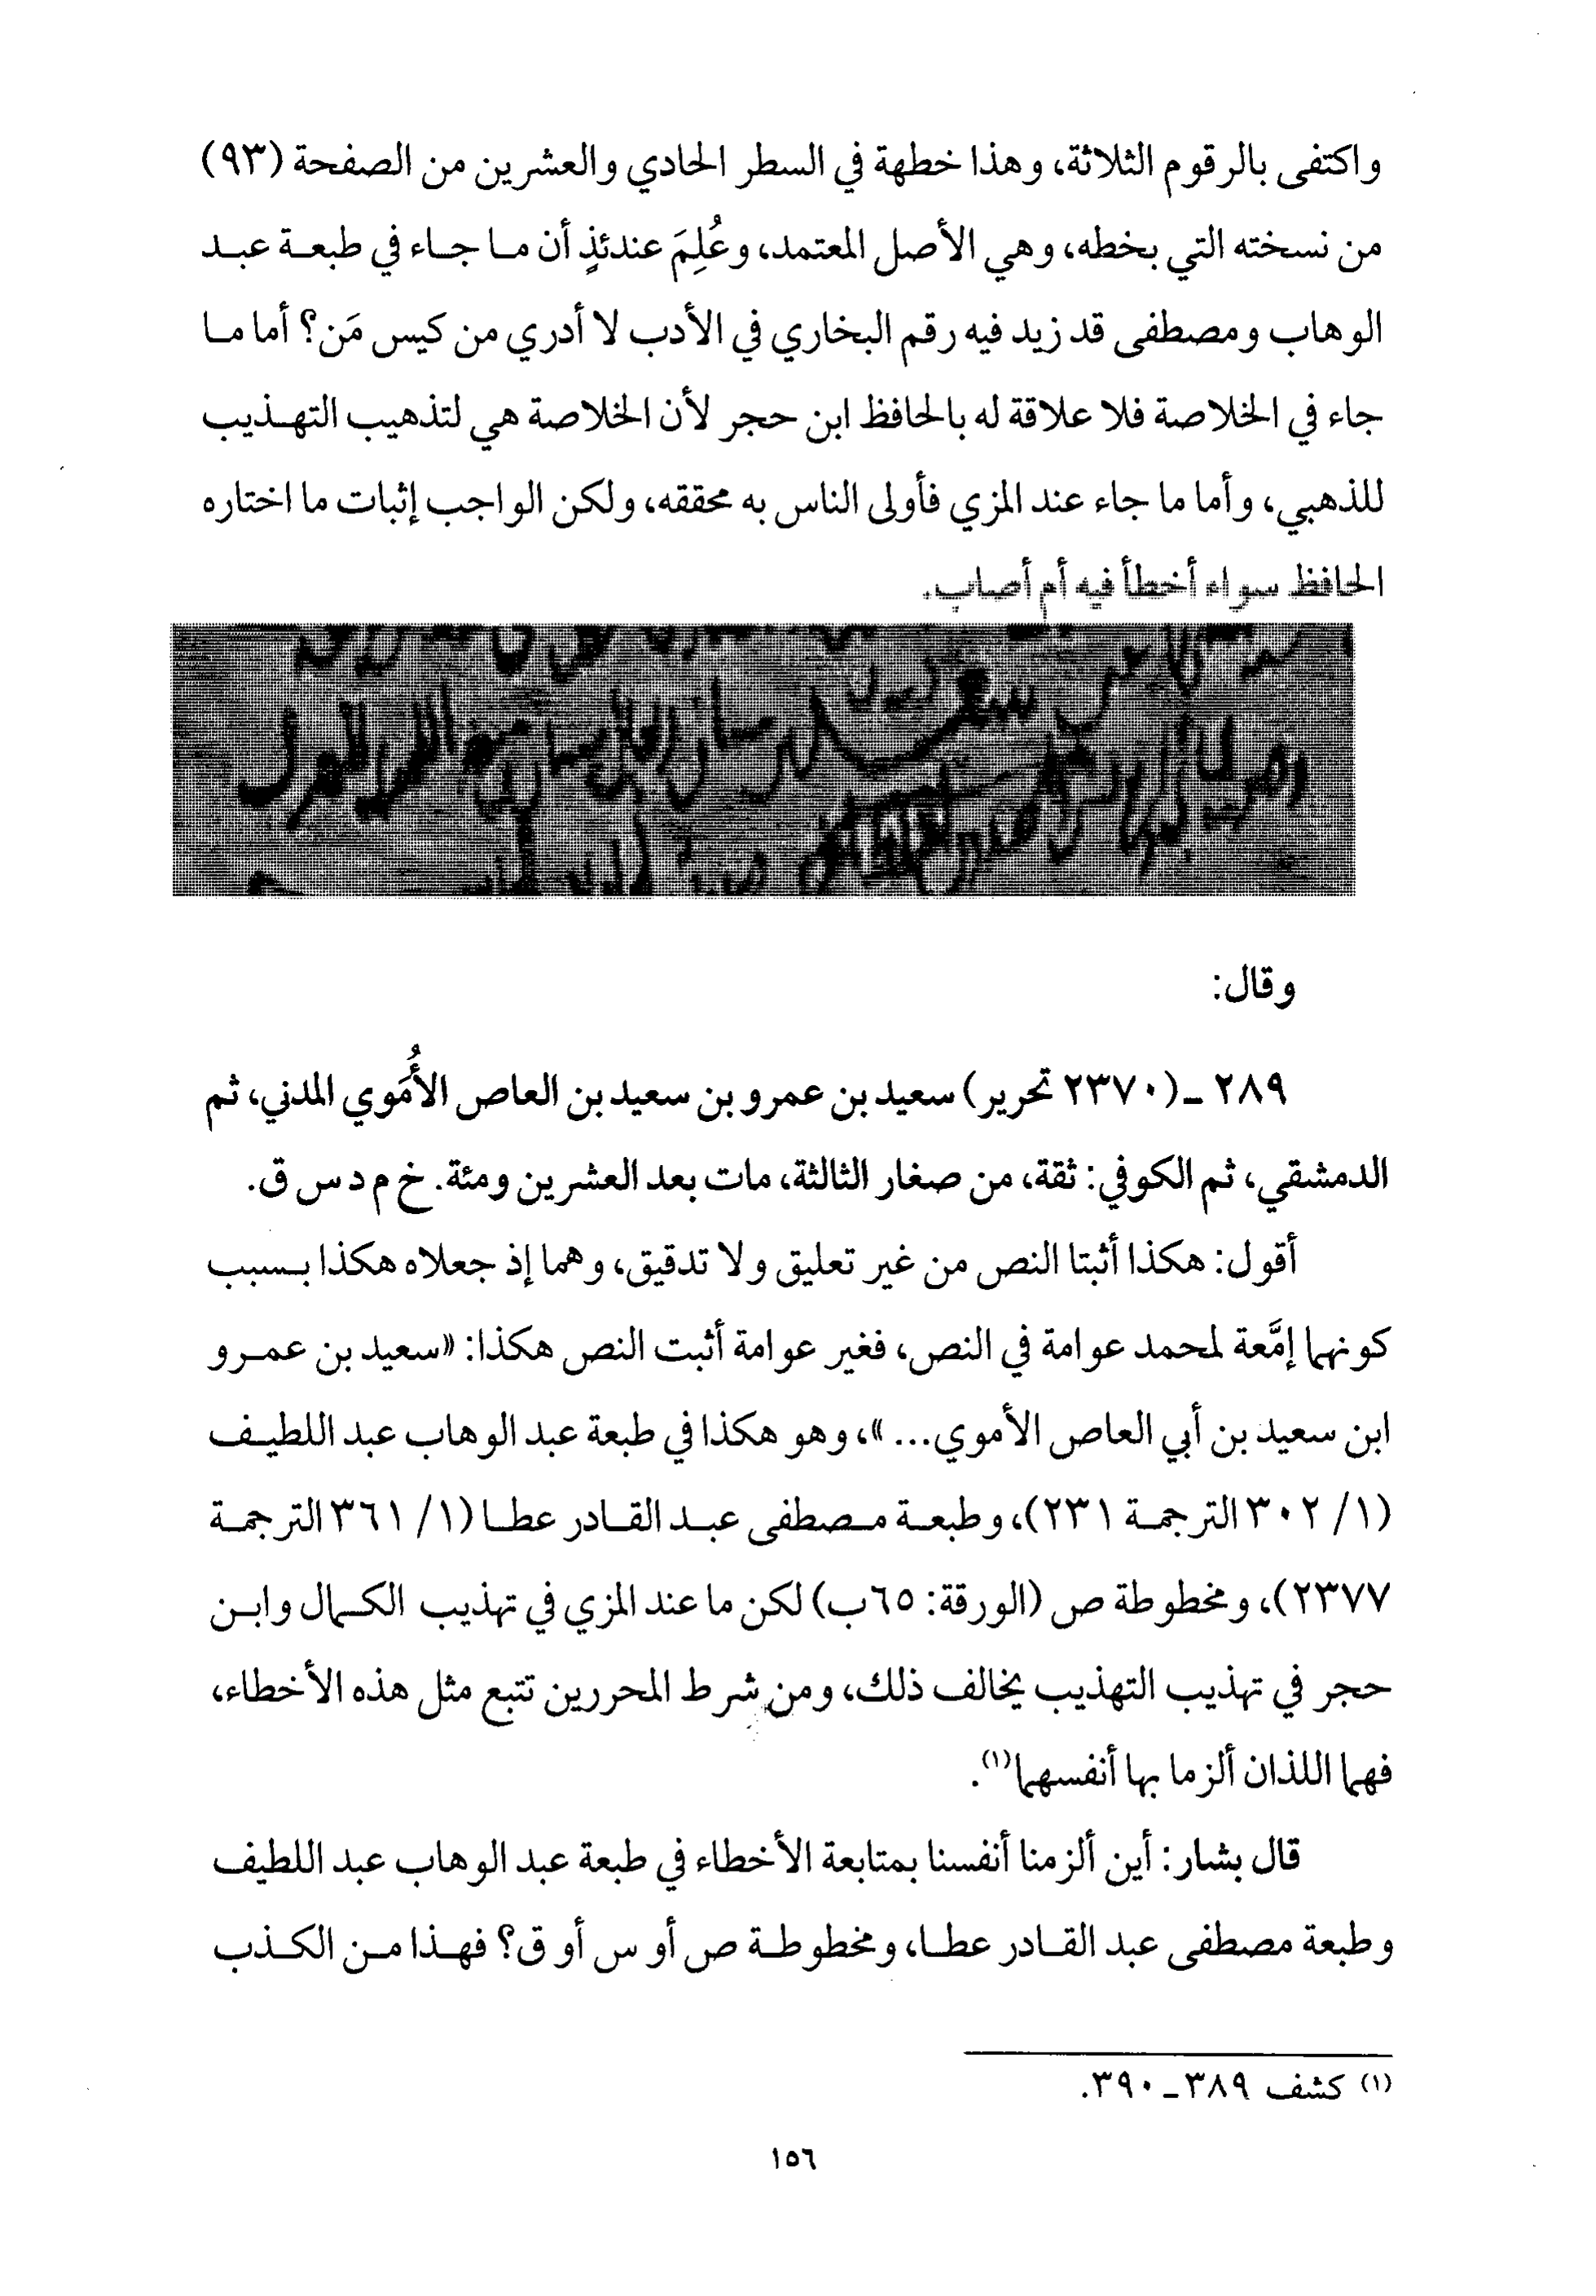 واكتفى بالرقوم الثلاثة، وهذا خطهة في السطر الحادي والعشرين من الصفحة (٩٣)
من نسخته التي بخطه، وهي الأصل المعتمد، وعُلِمَ عندئذٍ أن ما جاء في طبعة عبد
الوهاب ومصطفى قد زيد فيه رقم البخاري في الأدب لا أدري من كيس مَن؟ أما ما
جاء في الخلاصة فلا علاقة له بالحافظ ابن حجر لأن الخلاصة هي لتذهيب التهذيب
للذهبي، وأما ما جاء عند المزي فأولى الناس به محققه، ولكن الواجب إثبات ما اختاره
الحافظ سواء أخطأ فيه أم أصاب.
وقال:
٢٨٩ ـ (٢٣٧٠ تحرير) سعيد بن عمرو بن سعيد بن العاص الأُمَوي المدني، ثم
الدمشقي، ثم الكوفي: ثقة، من صغار الثالثة، مات بعد العشرين ومئة. خ م د س ق.
أقول: هكذا أثبتا النص من غير تعليق ولا تدقيق، وهما إذ جعلاه هكذا بسبب
كونهما إمَّعة لمحمد عوامة في النص، فغير عوامة أثبت النص هكذا: «سعيد بن عمرو
ابن سعيد بن أبي العاص الأموي...»، وهو هكذا في طبعة عبد الوهاب عبد اللطيف
(١/ ٣٠٢ الترجمة ٢٣١)، وطبعة مصطفى عبد القادر عطا (١/ ٣٦١ الترجمة
٢٣٧٧)، ومخطوطة ص (الورقة: ٦٥ب) لكن ما عند المزي في تهذيب الكمال وابن
حجر في تهذيب التهذيب يخالف ذلك، ومن شرط المحررين تتبع مثل هذه الأخطاء،
فهما اللذان ألزما بها أنفسهما(١).
قال بشار: أين ألزمنا أنفسنا بمتابعة الأخطاء في طبعة عبد الوهاب عبد اللطيف
وطبعة مصطفى عبد القادر عطا، ومخطوطة ص أو س أو ق؟ فهذا من الكذب
(١) كشف ٣٨٩ ـ ٣٩٠.
١٥٦